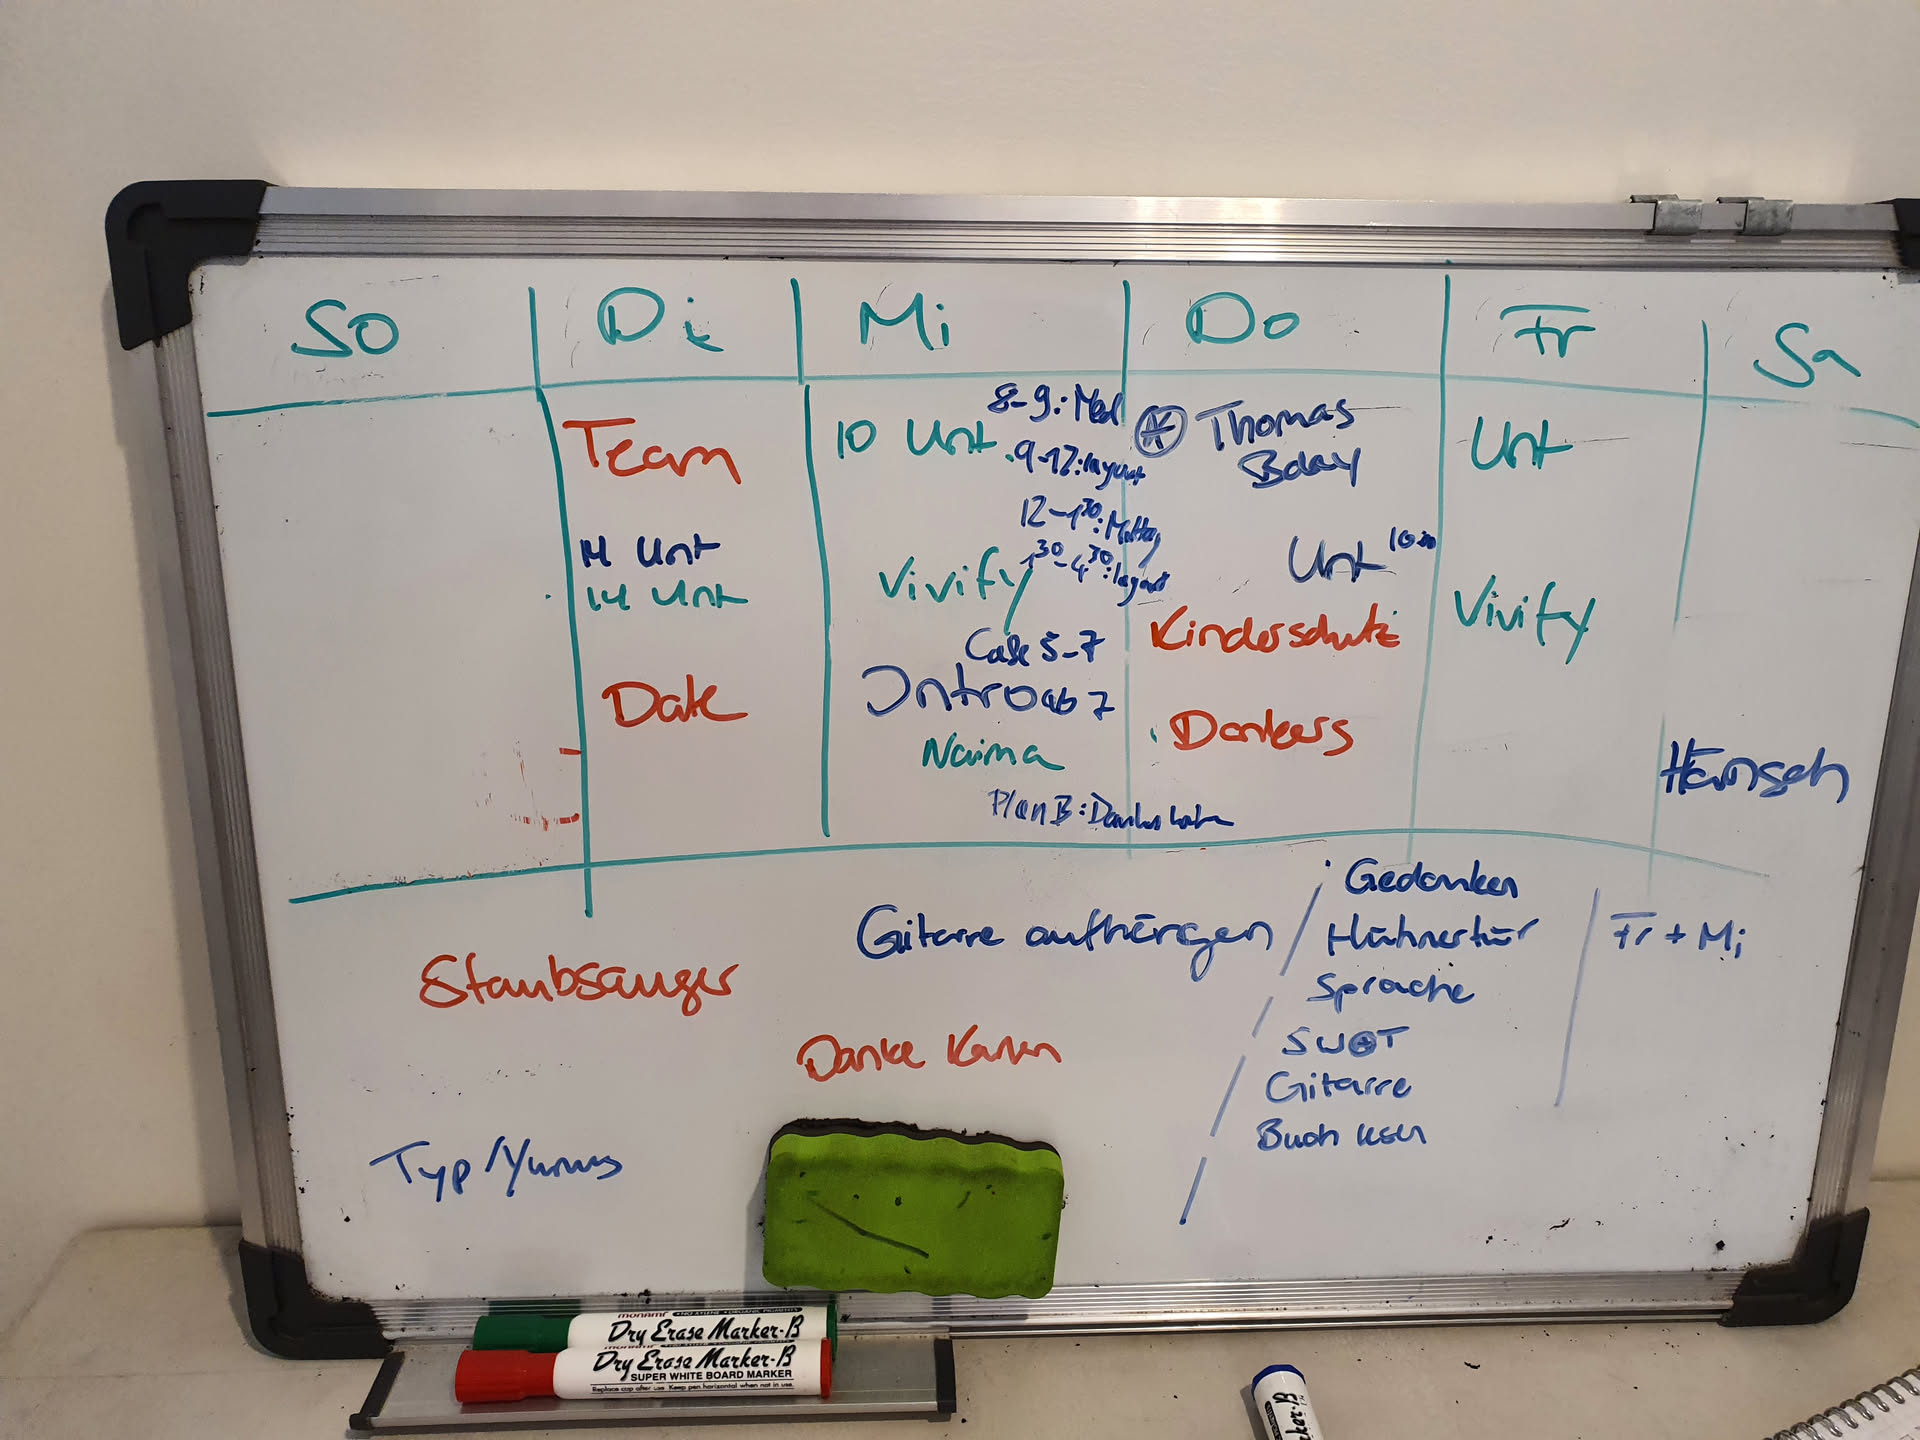 So Di Mi Do Fr Sa
Team
14 Unt
14 Unt
Date
10 Unt
8-9: Med
9-12: layout
12-1³⁰: Mittag
1³⁰-4³⁰: layout
Vivify
Case 5-7
Intro ab 7
Naima
Plan B:
Thomas
Bday
Unt 10³⁰
Kinderschutz
Dankers
Unt
Vivify
Hämsch
Staubsauger
Gitarre aufhängen
Danke Karen
Typ/Yunus
Gedanken
Hühnertür
Sprache
SWOT
Gitarre
Buch lesen
Fr + Mi
Dry Erase Marker-B
Dry Erase Marker-B
SUPER WHITE BOARD MARKER
Replace cap after use Keep pen horizontal when not in use.